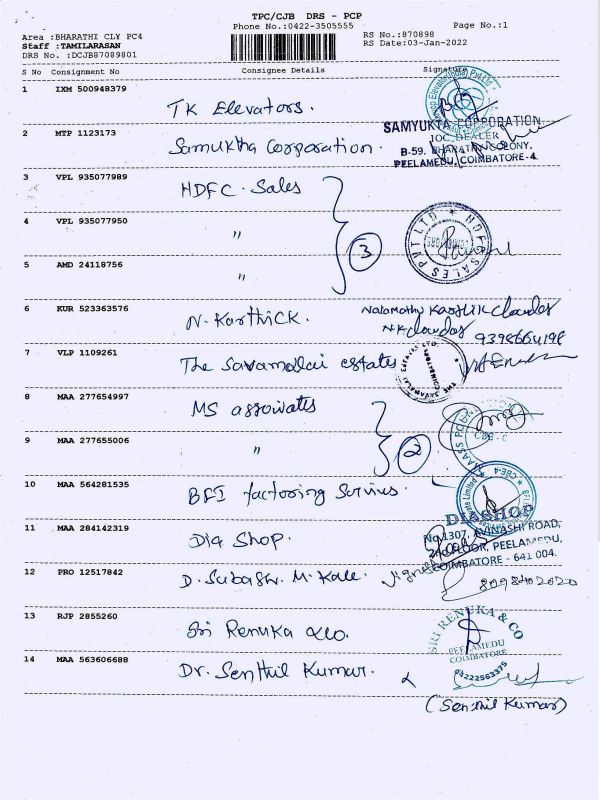 TPC/CJB DRS - PCP
Phone No.:0422-3505555
Page No.:1
Area :BHARATHI CLY PC4
Staff :TAMILARASAN
DRS No. :DCJB87089801
RS No.:870898
RS Date:03-Jan-2022
S No Consignment No Consignee Details Signature
1 IXM 500948379 TK Elevators.
2 MTP 1123173 Samuktha Corporation.
SAMYUKTA CORPORATION
IOC DEALER
B-59, BHARATHI COLONY,
PEELAMEDU, COIMBATORE-4.
3 VPL 935077989 HDFC. Sales
4 VPL 935077950 "
3
HDFC SALES PVT LTD
5 AMD 24118756 "
6 KUR 523363576 N. Karthick.
NK
9398664198
7 VLP 1109261 The Savamalai estates
8 MAA 277654997 MS associates
9 MAA 277655006 "
2
10 MAA 564281535 BFI factoring Servives.
CBE-4
DIASHOP
No.1307, AVINASHI ROAD,
2nd FLOOR, PEELAMEDU,
COIMBATORE - 641 004.
11 MAA 284142319 Dia Shop.
12 PRO 12517842 D. Subash. M. Kale.
8098402020
13 RJP 2855260 Sri Renuka &Co.
SRI RENUKA & CO
PEELAMEDU
COIMBATORE
04222563375
14 MAA 563606688 Dr. Senthil Kumar.
(Senthil Kumar)